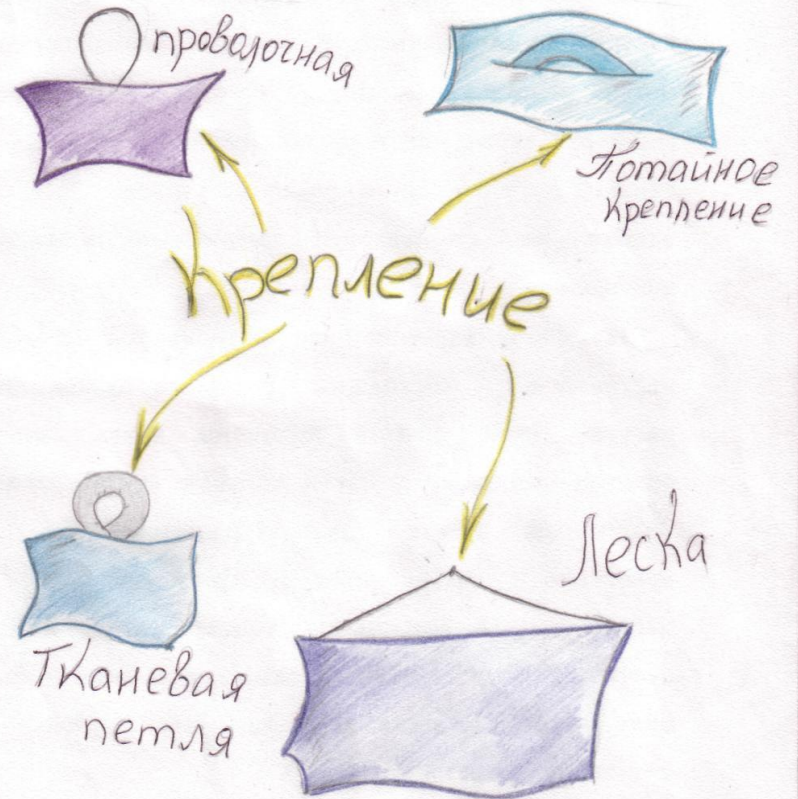 проволочная
Потайное
крепление
Крепление
Леска
Тканевая
петля